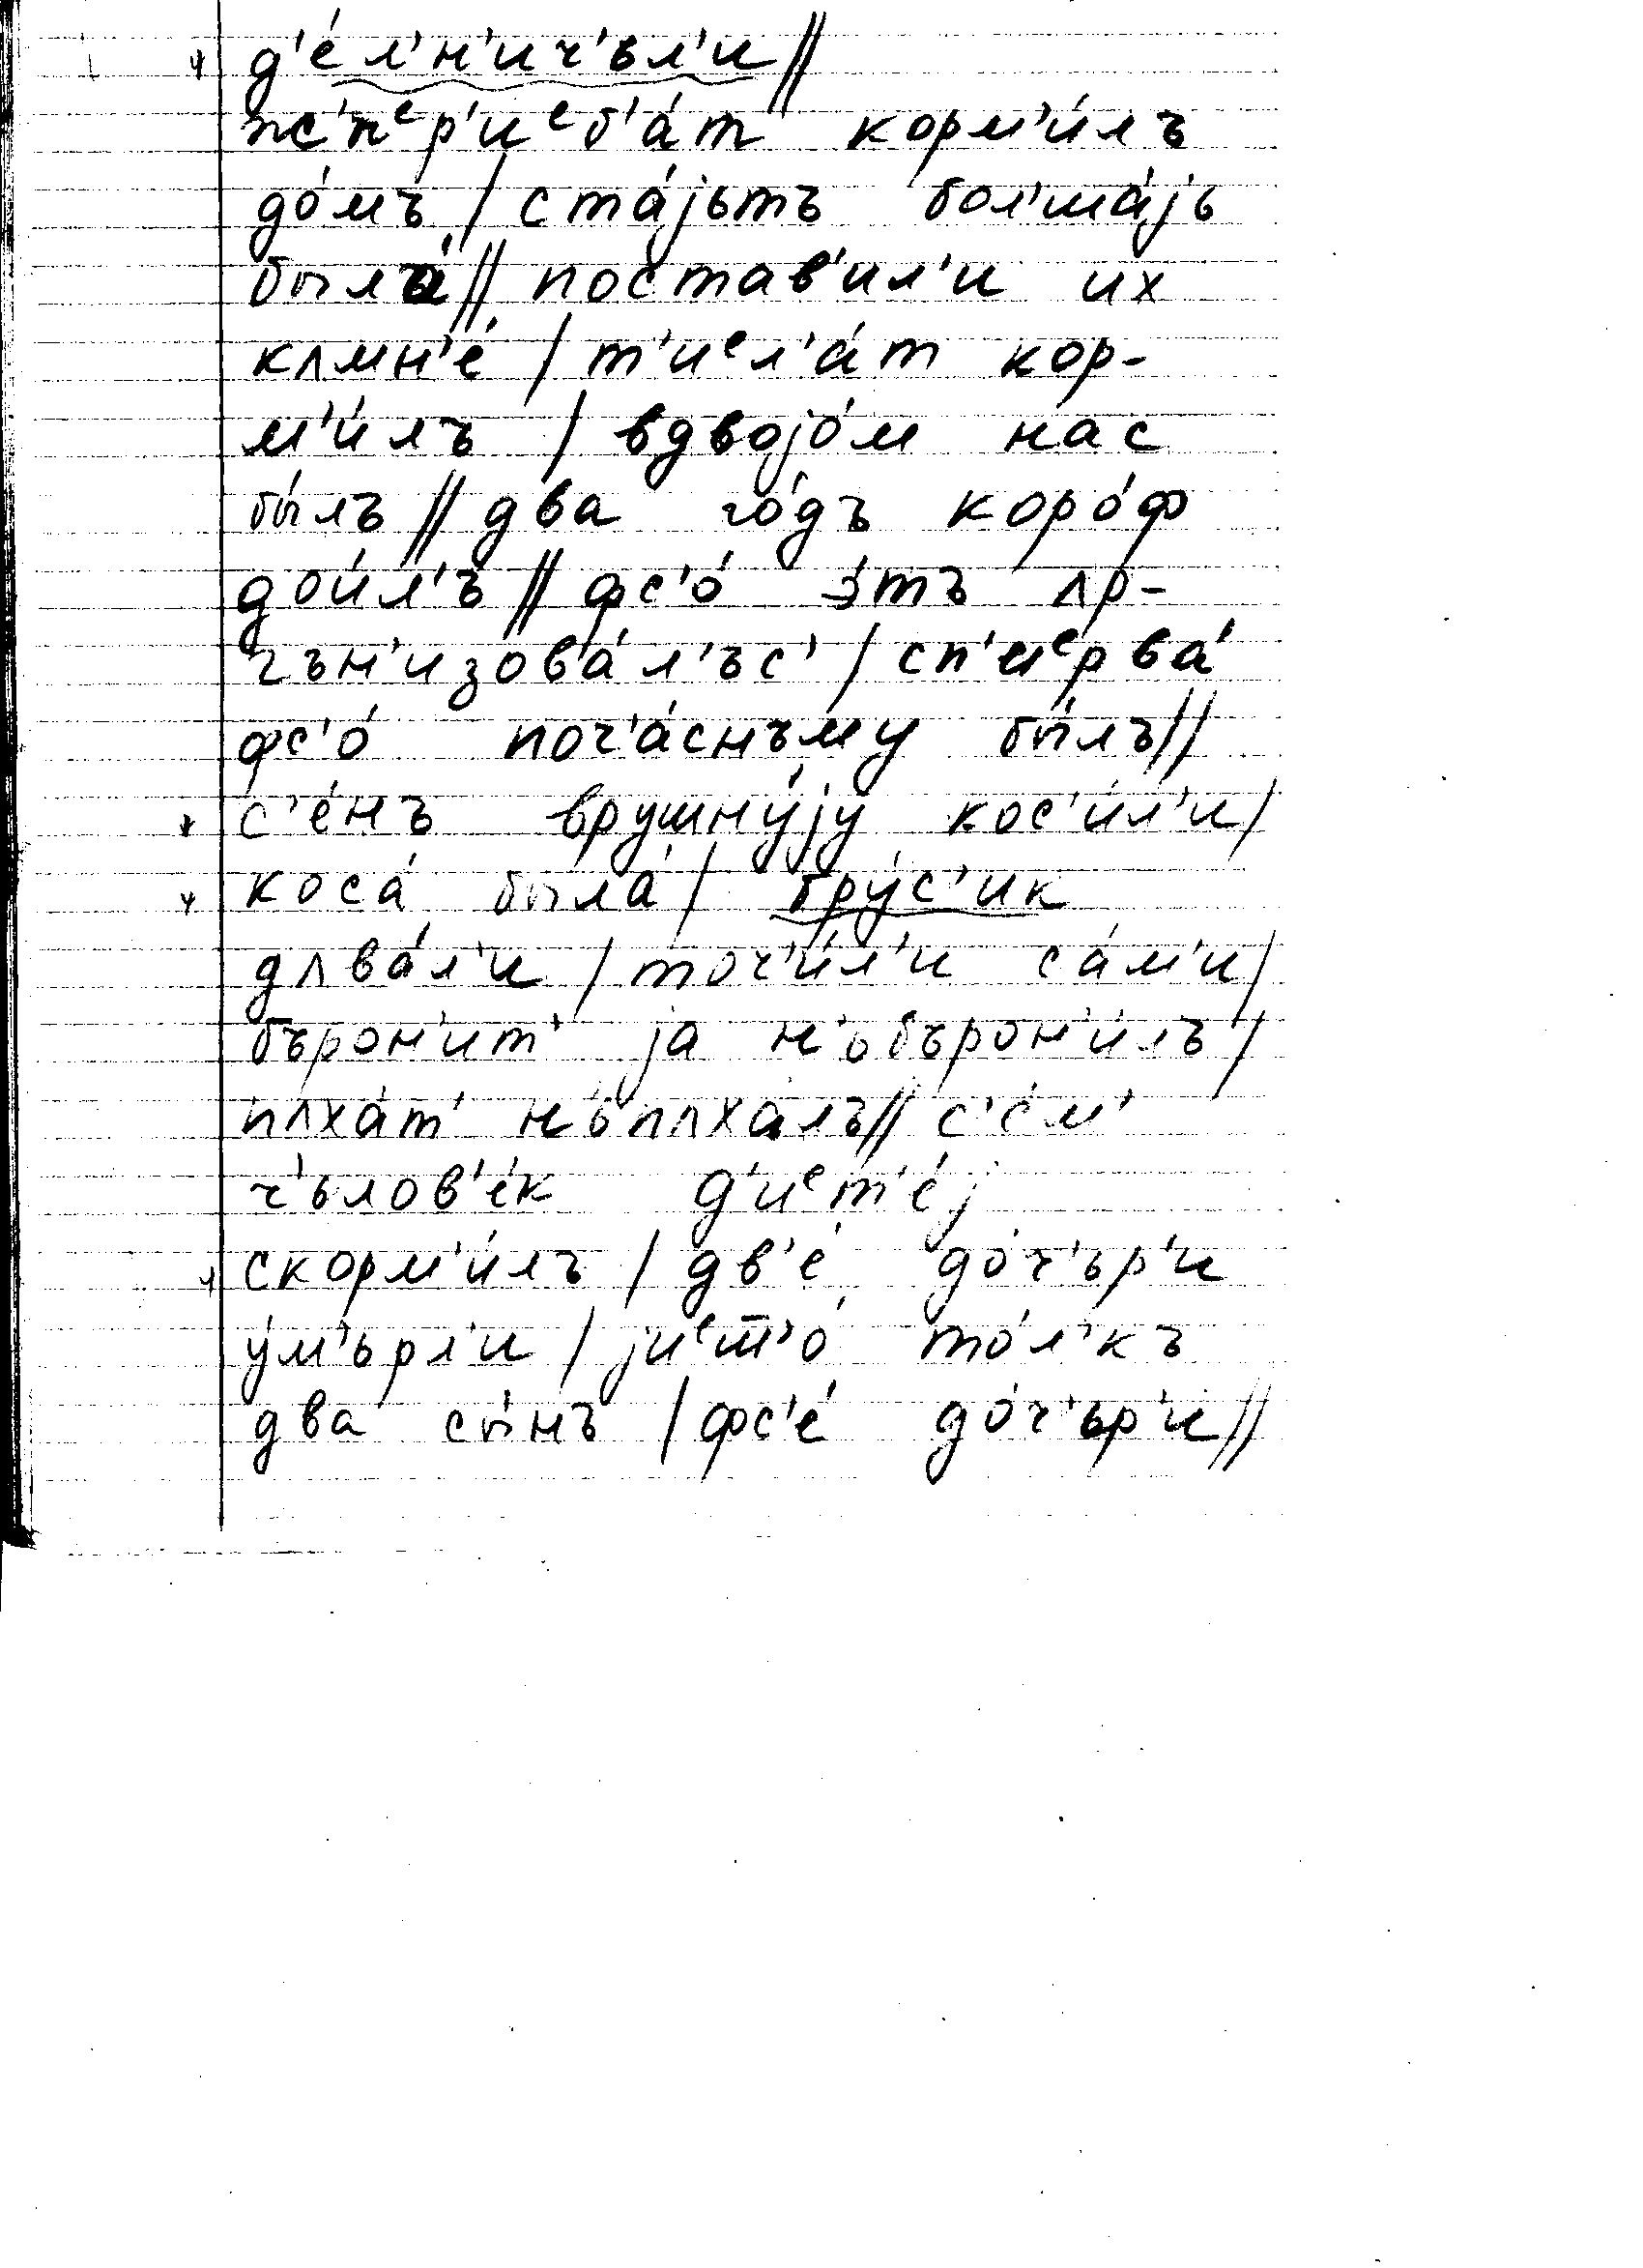 д'е́л'н'ич'ъл'и//
ж'ере́р'иеб'а́т корм'и́лъ
до́мъ / ста́јьтъ бол'ша́јь
была́// постав'ил'и их
кʌмн'е́ / т'иел'а́т кор-
м'и́лъ / вдвојо́м нас
бы́лъ // два го́дъ коро́ф
дои́л'ъ // фс'о́ э́тъ ʌр-
гън'изова́л'ъс' / сп'иерва́
фс'о́ поч'а́снъму бы́лъ//
с'е́нъ врушну́ју кос'и́л'и/
коса́ была́ / бру́с'ик
дʌва́л'и / точ'и́л'и са́м'и/
бърон'ит' ја н'ьбърон'и́лъ/
пʌха́т' н'ьпʌха́лъ// с'е́м'
ч'ьлов'е́к д'иет'е́ј
скорм'и́лъ / дв'е́ до́ч'ьр'и
у́м'ьрл'и / јиет'о́ то́л'къ
два сы́нъ / фс'е́ до́ч'ьр'и//